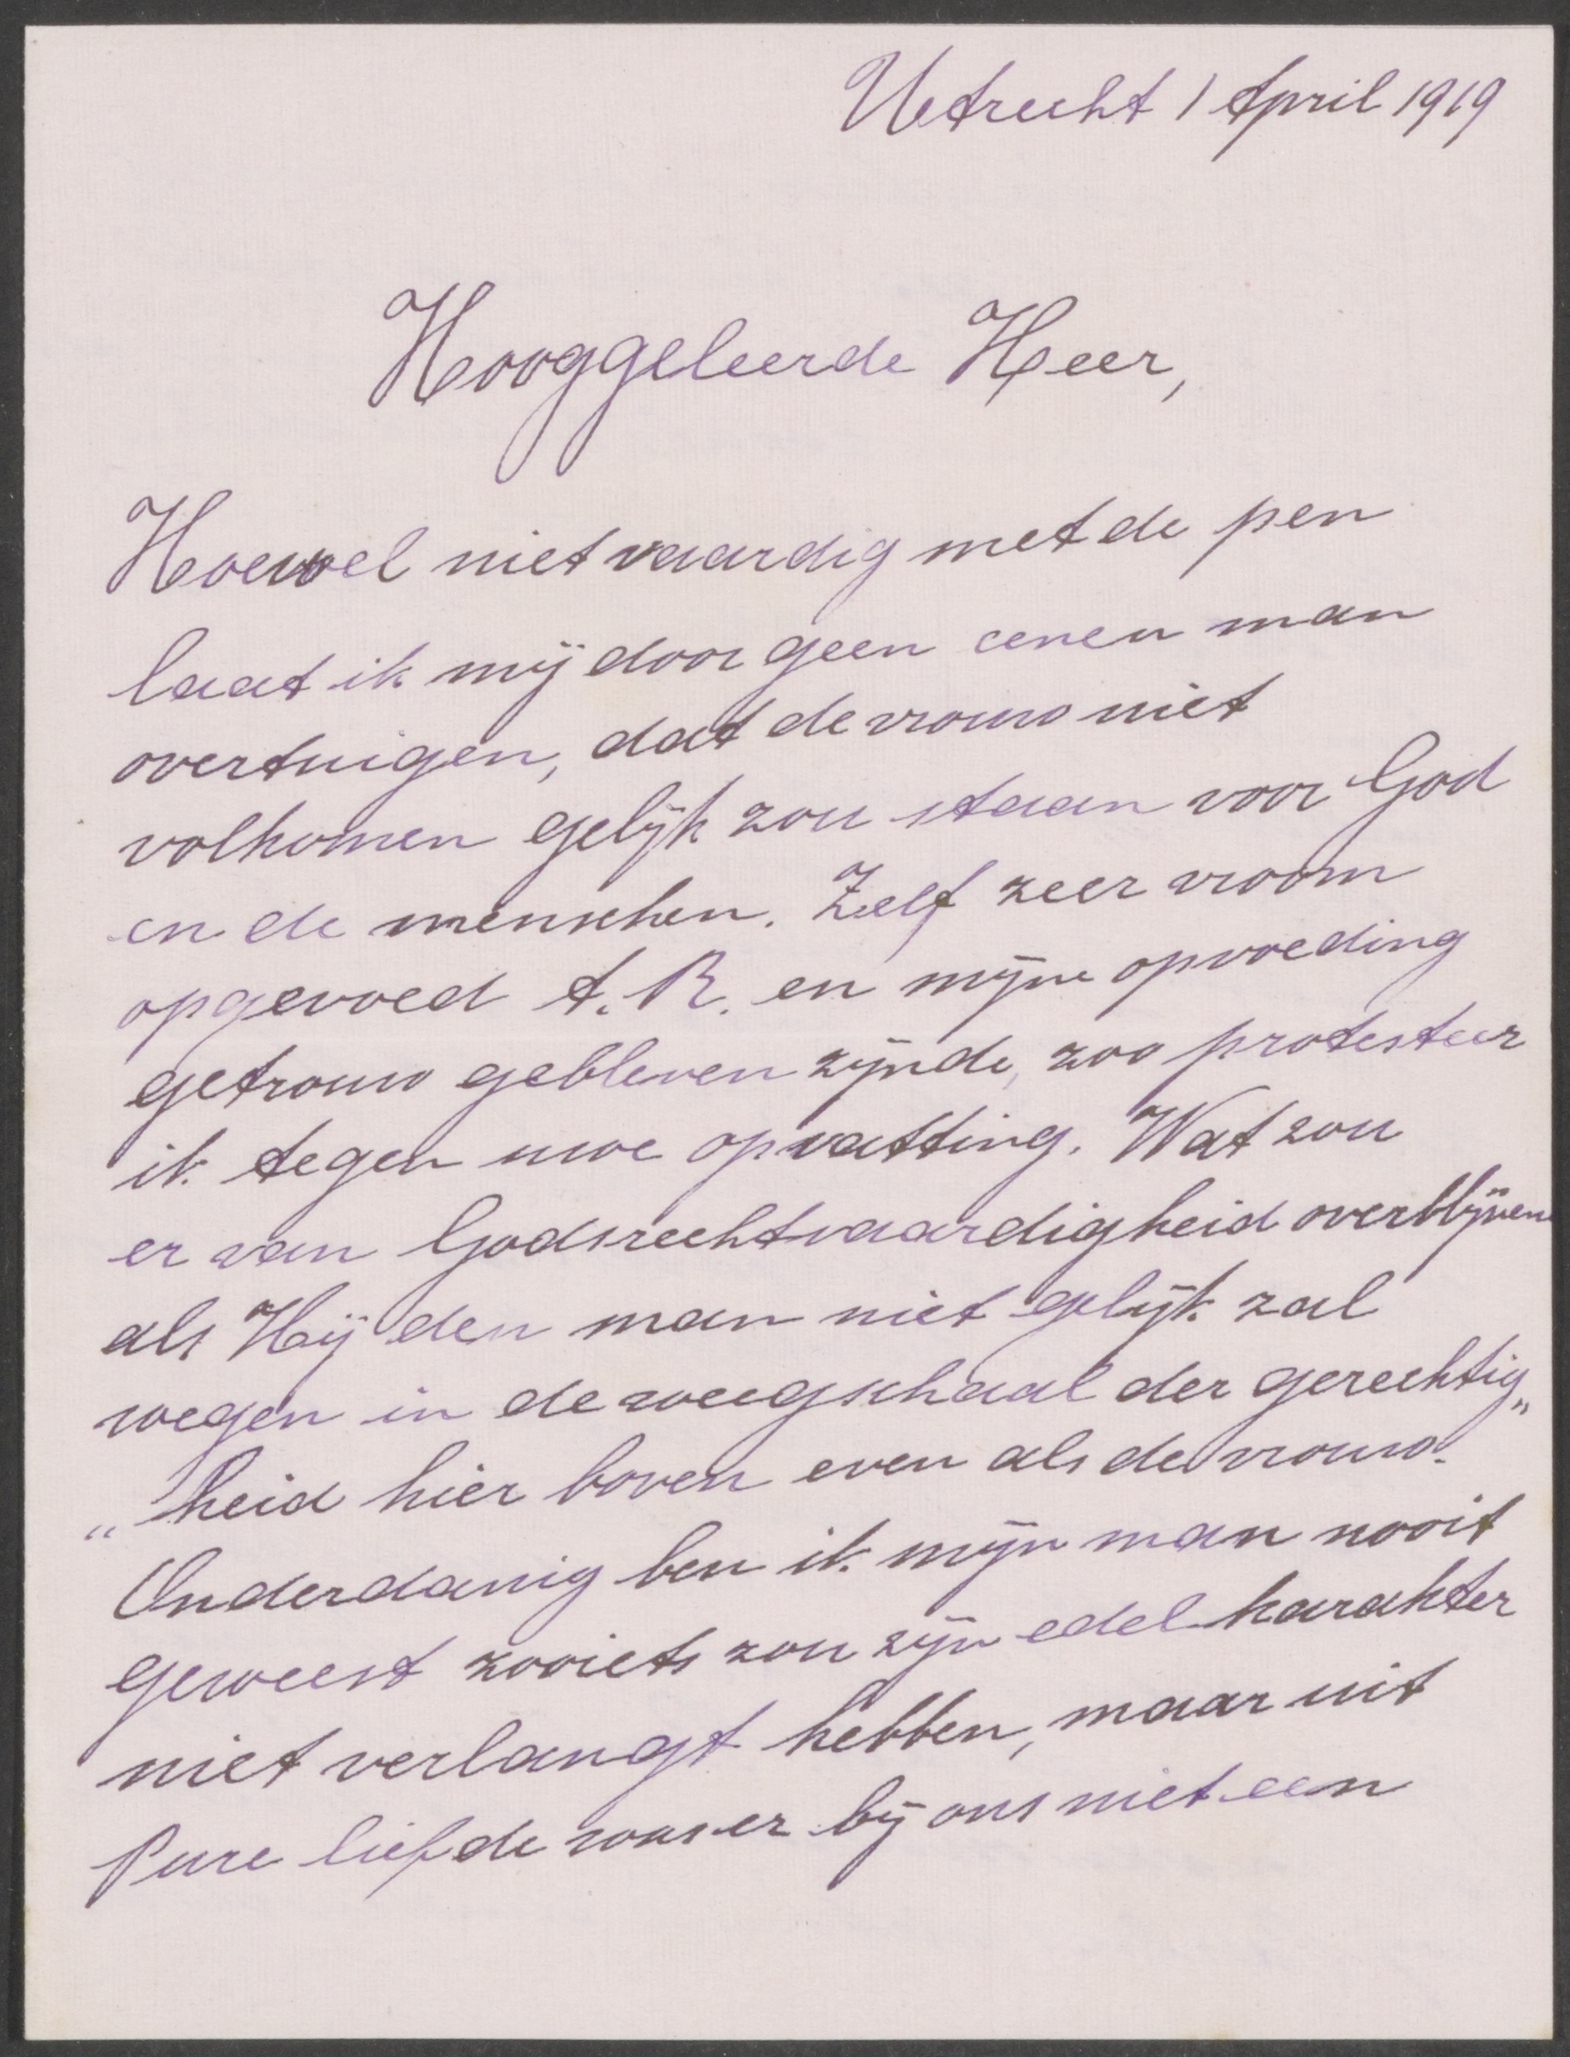 Utrecht 1 April 1919
Hooggeleerde Heer,
Hoewel niet vaardig met de pen
laat ik mij door geen eenen man
overtuigen, dat de vrouw niet
volkomen gelijk zou staan voor God
en de menschen. Zelf zeer vroom
opgevoed A. R. en mijne opvoeding
getrouw gebleven zijnde, zoo protesteer
ik tegen uwe opvatting. Wat zou
er van Godsrechtvaardigheid overblijven
als Hij den man niet gelijk zal
wegen in de weegschaal der gerechtig„
“heid hier boven even als de vrouw.
Onderdanig ben ik mijn man nooit
geweest zooiets zou zijn edel karakter
niet verlangt hebben, maar uit
pure liefde was er bij ons niet een